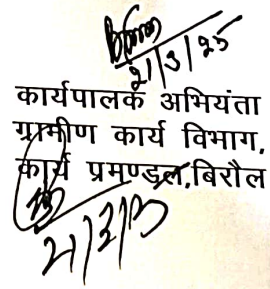 21/3/25
कार्यपालक अभियंता
ग्रामीण कार्य विभाग,
कार्य प्रमण्डल,बिरौल